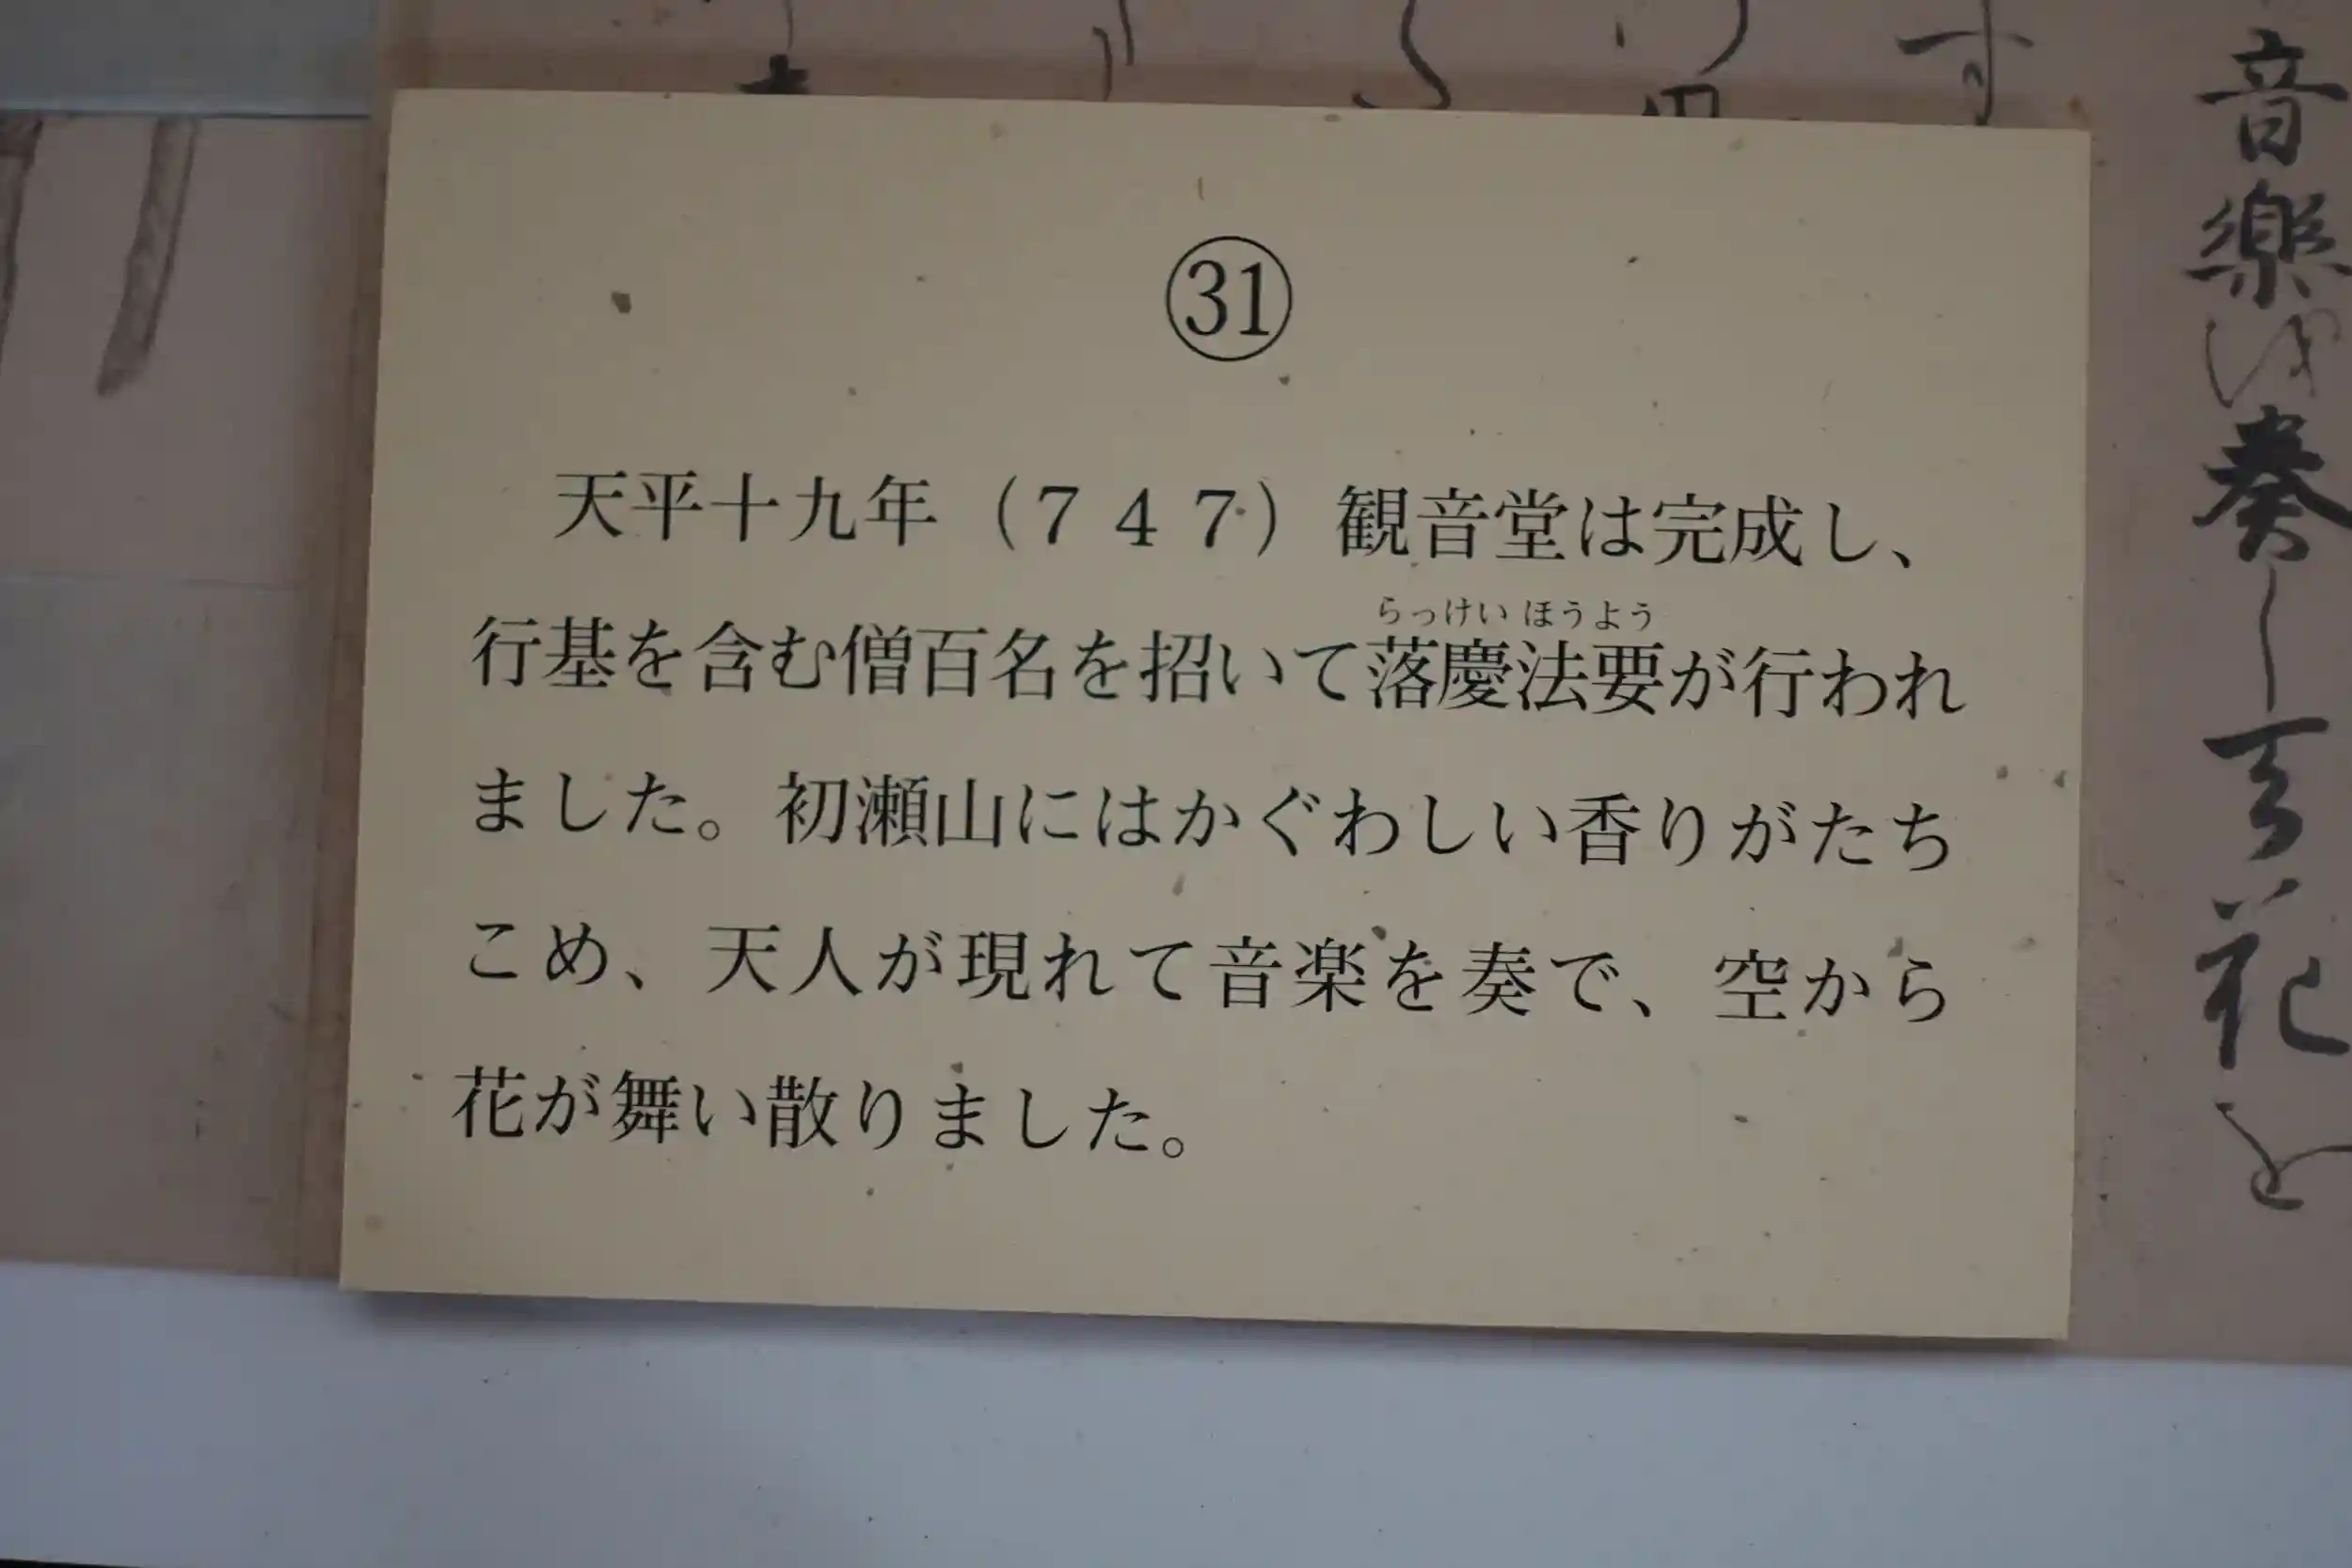 ㉛
天平十九年（７４７）観音堂は完成し、
らっけい ほうよう
行基を含む僧百名を招いて落慶法要が行われ
ました。初瀬山にはかぐわしい香りがたち
こめ、天人が現れて音楽を奏で、空から
花が舞い散りました。
音樂を奏し天花を